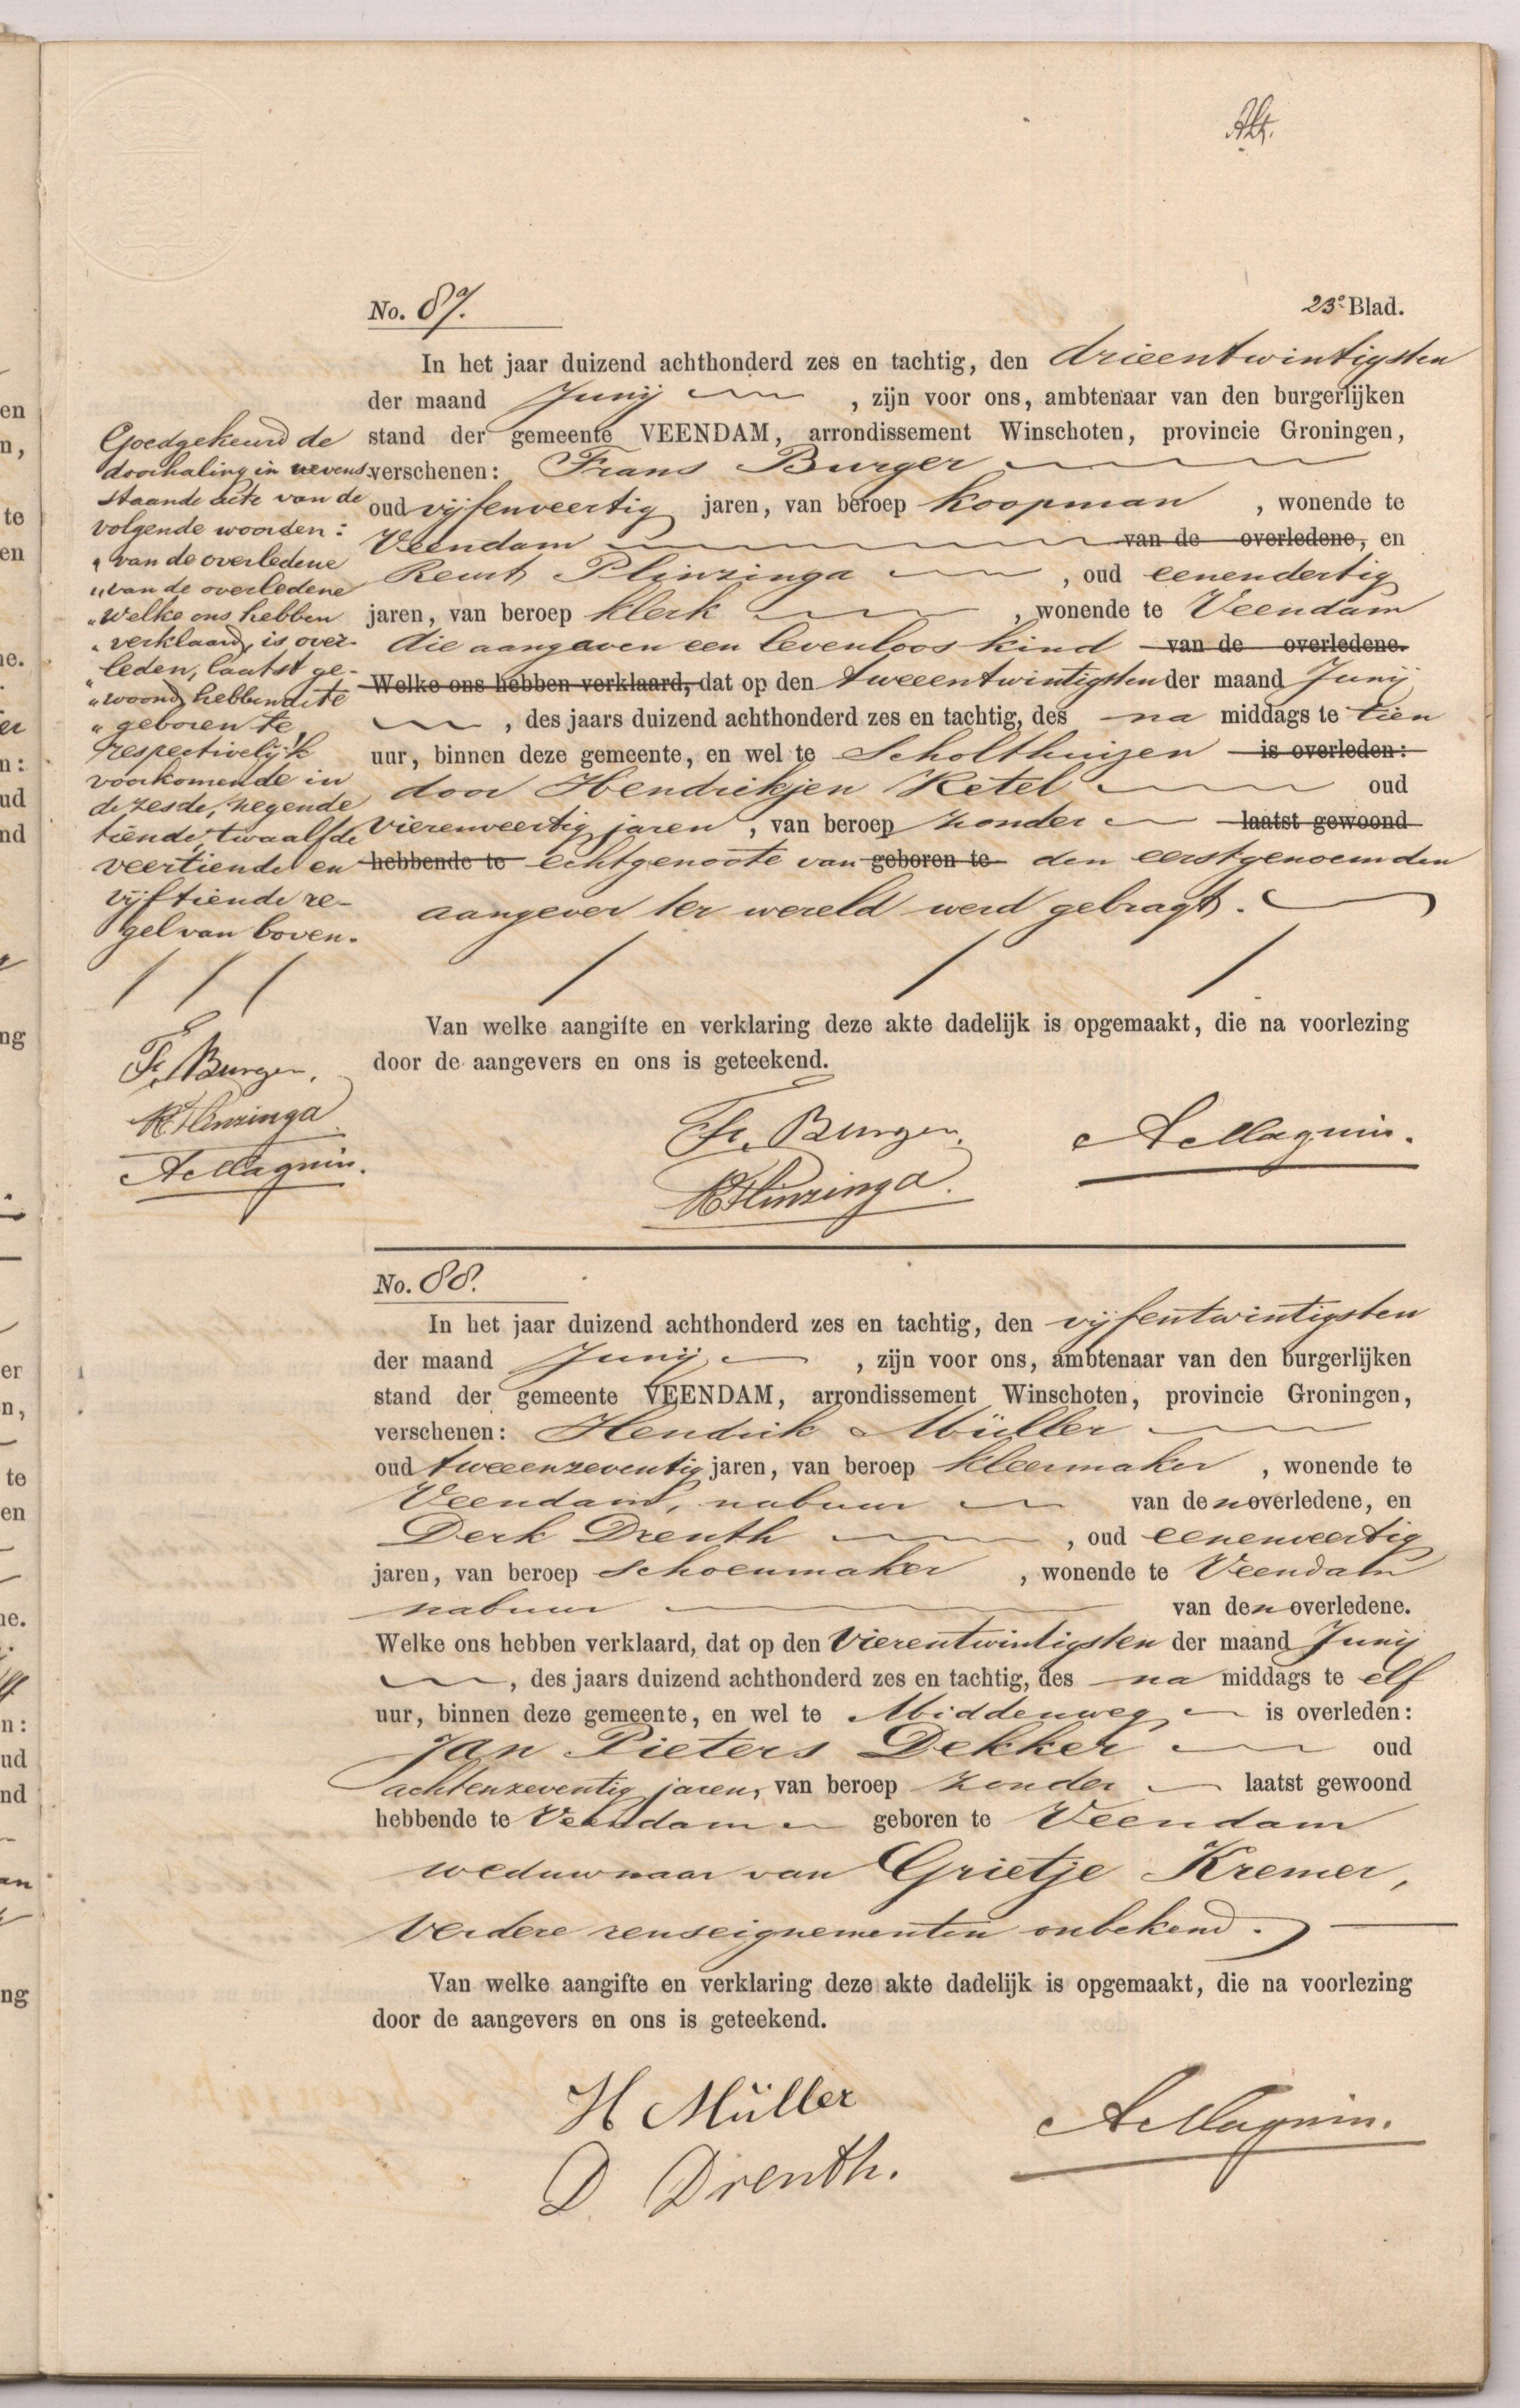 No. 87.
23e Blad.
In het jaar duizend achthonderd zes en tachtig, den drieentwintigsten
der maand Junij, zijn voor ons, ambtenaar van den burgerlijken
stand der gemeente VEENDAM, arrondissement Winschoten, provincie Groningen,
verschenen: Frans Burger
oud vijfenveertig jaren, van beroep koopman, wonende te
Veendam van de overledene, en
Reint Plinzinga, oud eenendertig
jaren, van beroep klerk, wonende te Veendam
die aangaven een levenloos kind van de overledene.
Welke ons hebben verklaard, dat op den tweeentwintigsten der maand Junij
, des jaars duizend achthonderd zes en tachtig, des na middags te tien
uur, binnen deze gemeente, en wel te Scholthuizen is overleden:
door Hendrikjen Ketel oud
vierenveertig jaren, van beroep zonder laatst gewoond
hebbende te echtgenoote van geboren te den eerstgenoemden
aangever ter wereld werd gebragt.
Van welke aangifte en verklaring deze akte dadelijk is opgemaakt, die na voorlezing
door de aangevers en ons is geteekend.
Fr. Burger.
A Maguin.
R Plinzinga.
Goedgekeurd de
doorhaling in nevens
staande acte van de
volgende woorden:
"van de overledene
"van de overledene
"Welke ons hebben
"verklaard, is over-
"leden, laatst ge-
"woond hebbende te
"geboren te
respectivelijk
voorkomende in
de zesde, negende
tiende, twaalfde
veertiende en
vijftiende re-
gel van boven.
Fr. Burger.
R Plinzinga
A Maguin.
No. 88.
In het jaar duizend achthonderd zes en tachtig, den vijfentwintigsten
der maand Junij, zijn voor ons, ambtenaar van den burgerlijken
stand der gemeente VEENDAM, arrondissement Winschoten, provincie Groningen,
verschenen: Hendrik Müller
oud tweeenzeventig jaren, van beroep kleermaker, wonende te
Veendam, nabuur van den overledene, en
Derk Drenth, oud eenenveertig
jaren, van beroep schoenmaker, wonende te Veendam
nabuur van den overledene.
Welke ons hebben verklaard, dat op den vierentwintigsten der maand Junij
, des jaars duizend achthonderd zes en tachtig, des na middags te elf
uur, binnen deze gemeente, en wel te Middenweg is overleden:
Jan Pieters Dekker oud
achtenzeventig jaren, van beroep zonder laatst gewoond
hebbende te Veendam geboren te Veendam
weduwnaar van Grietje Kremer,
verdere renseignementen onbekend.
Van welke aangifte en verklaring deze akte dadelijk is opgemaakt, die na voorlezing
door de aangevers en ons is geteekend.
H Müller
A Maguin.
D Drenth.